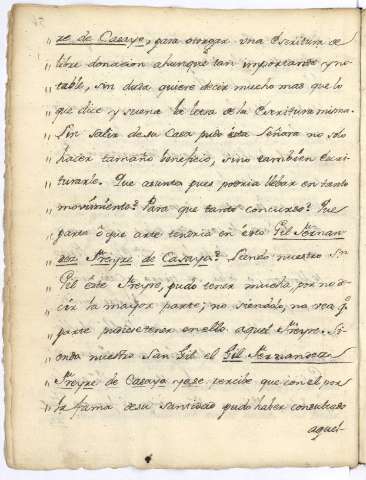 „ re de Casayo, para otorgar una Escritura de
„ libre donacion ahunque tan importante y no-
„ table, sin duda quiere decir mucho mas que lo
„ que dice y suena la letra de la Escritura misma.
„ Sin salir de su Casa pudo esta Señora no solo
„ hacer tamaño beneficio, sino tambien Escri-
„ turarle. Que asunto pues podria llebar en tanto
„ movimiento? Para que tanto concurso? Que
„ parte ò que arte tendria en esto Gil Fernan-
„ dez Freyre de Casayo? Siendo nuestro Sn
„ Gil este Freyre, pudo tener mucha, por no de-
„ cir la mayor parte; no siendolo, no vea q.
„ parte pudiese tener en ello aquel Freyre. Si-
„ endo nuestro San Gil el Gil Fernandez
„ Freyre de Casayo ya se percibe que con el por
„ la fama de su santidad pudo haber consultado
aquel